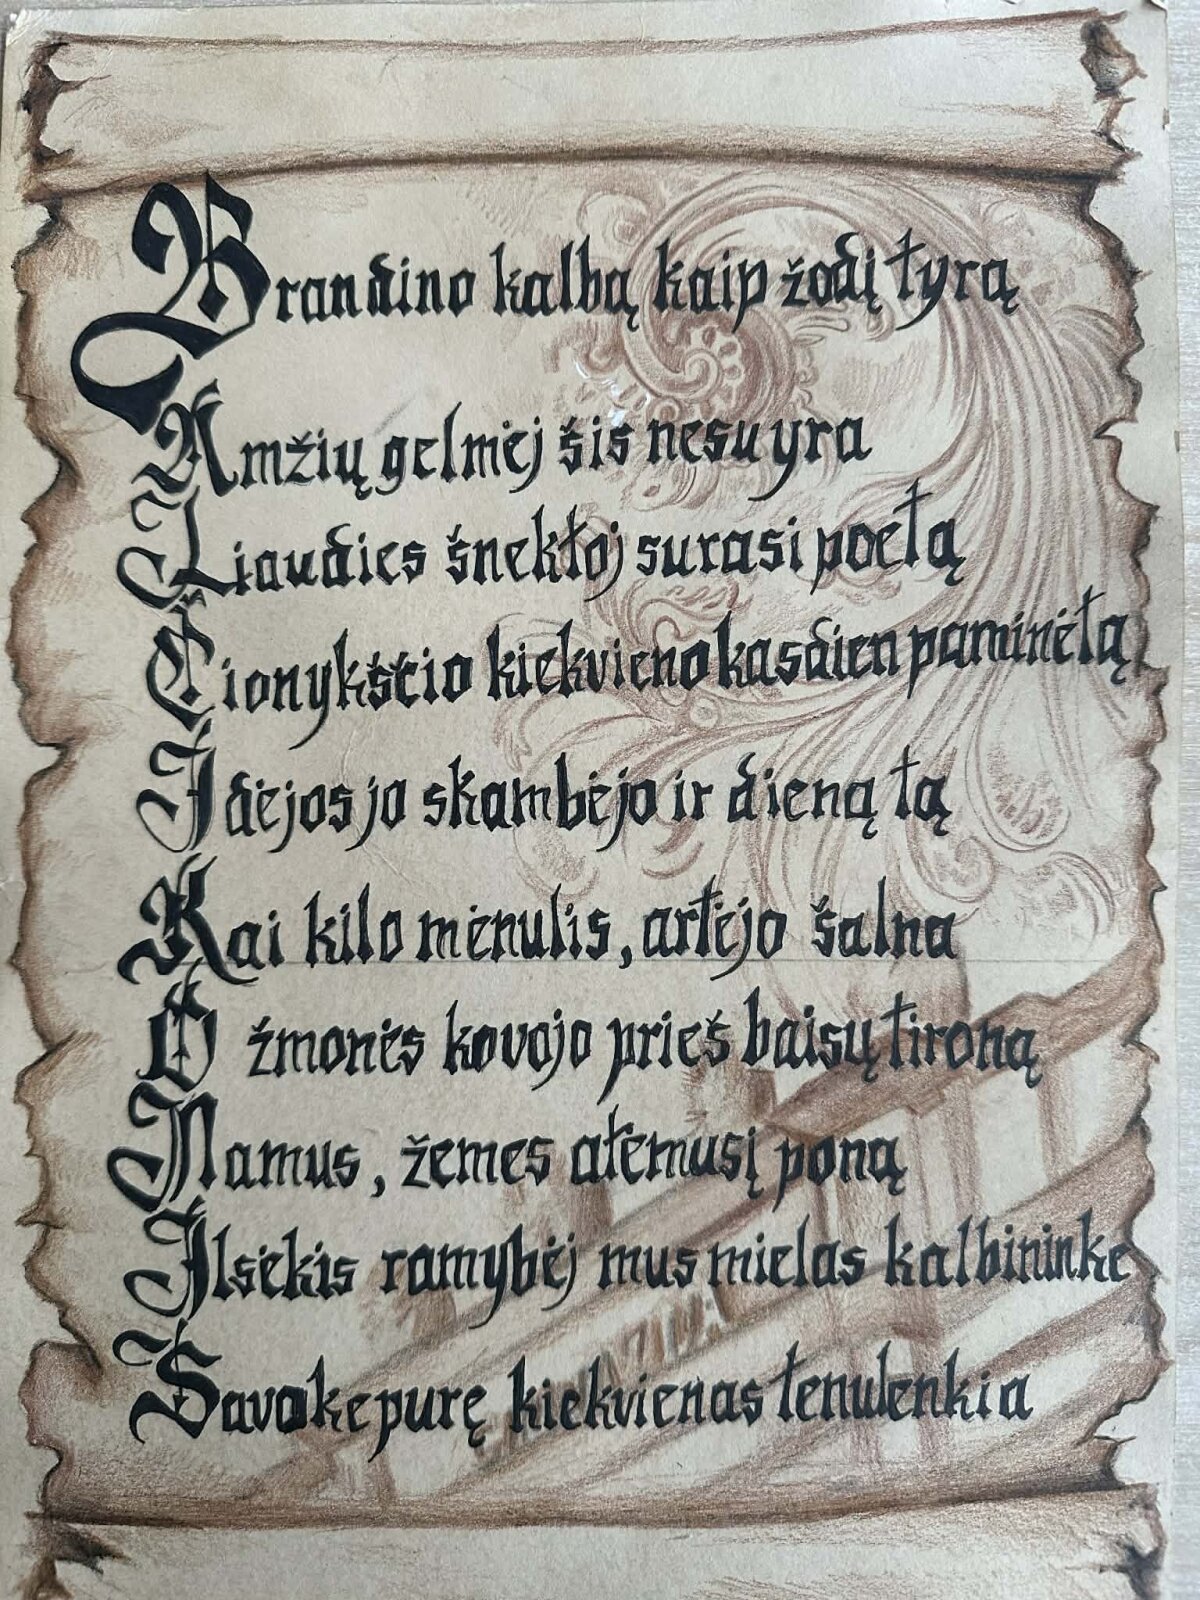 Brandino kalbą kaip žodį tyrą
Amžių gelmėj šis nesuyra
Liaudies šnektoj surasi poetą
Čionykščio kiekvieno kasdien paminėtą
Idėjos jo skambėjo ir dieną tą
Kai kilo mėnulis, artėjo šalna
O žmonės kovojo prieš baisų tironą
Namus, žemes atėmusį poną
Ilsėkis ramybėj mus mielas kalbininke
Savo kepurę kiekvienas tenulenkia